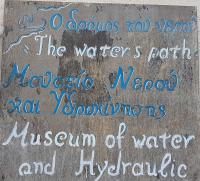 Ο δρόμος του νερού
The waters path
Μουσείο Νερού
και Υδροκίνησης
Museum of water
and Hydraulic